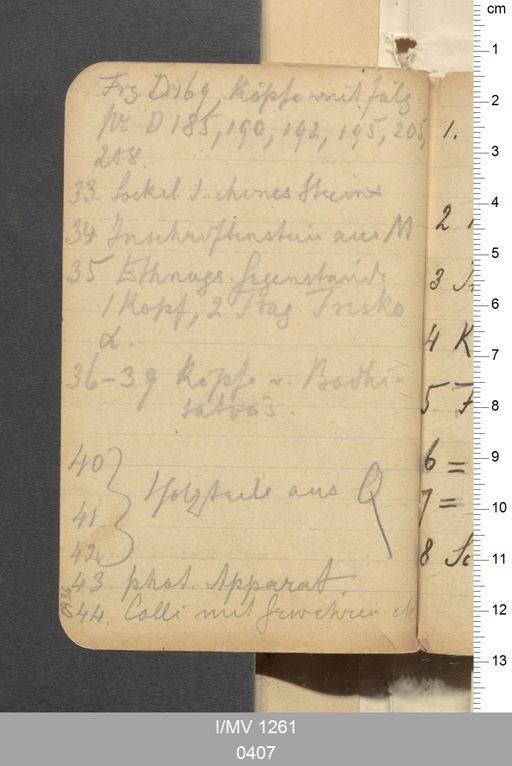 Frg D169, Köpfe mit folg.
Nr. D 185, 190, 192, 195, 205,
208.
33 Sockel d. chines Steins
34 Inschriftenstein aus M
35 Ethnogr. Gegenstände
1 Kopf, 2 Frag Fresko
α.
36–39 Köpfe v. Bodhi-
satvas.
40
41 Holzteile aus Q
42
43 phot. Apparat
44. Colli mit Gewehren etc
0936
1.
2
3
4 K
5 F
6 =
7 =
8 Sc
cm
1
2
3
4
5
6
7
8
9
10
11
12
13
I/MV 1261
0407